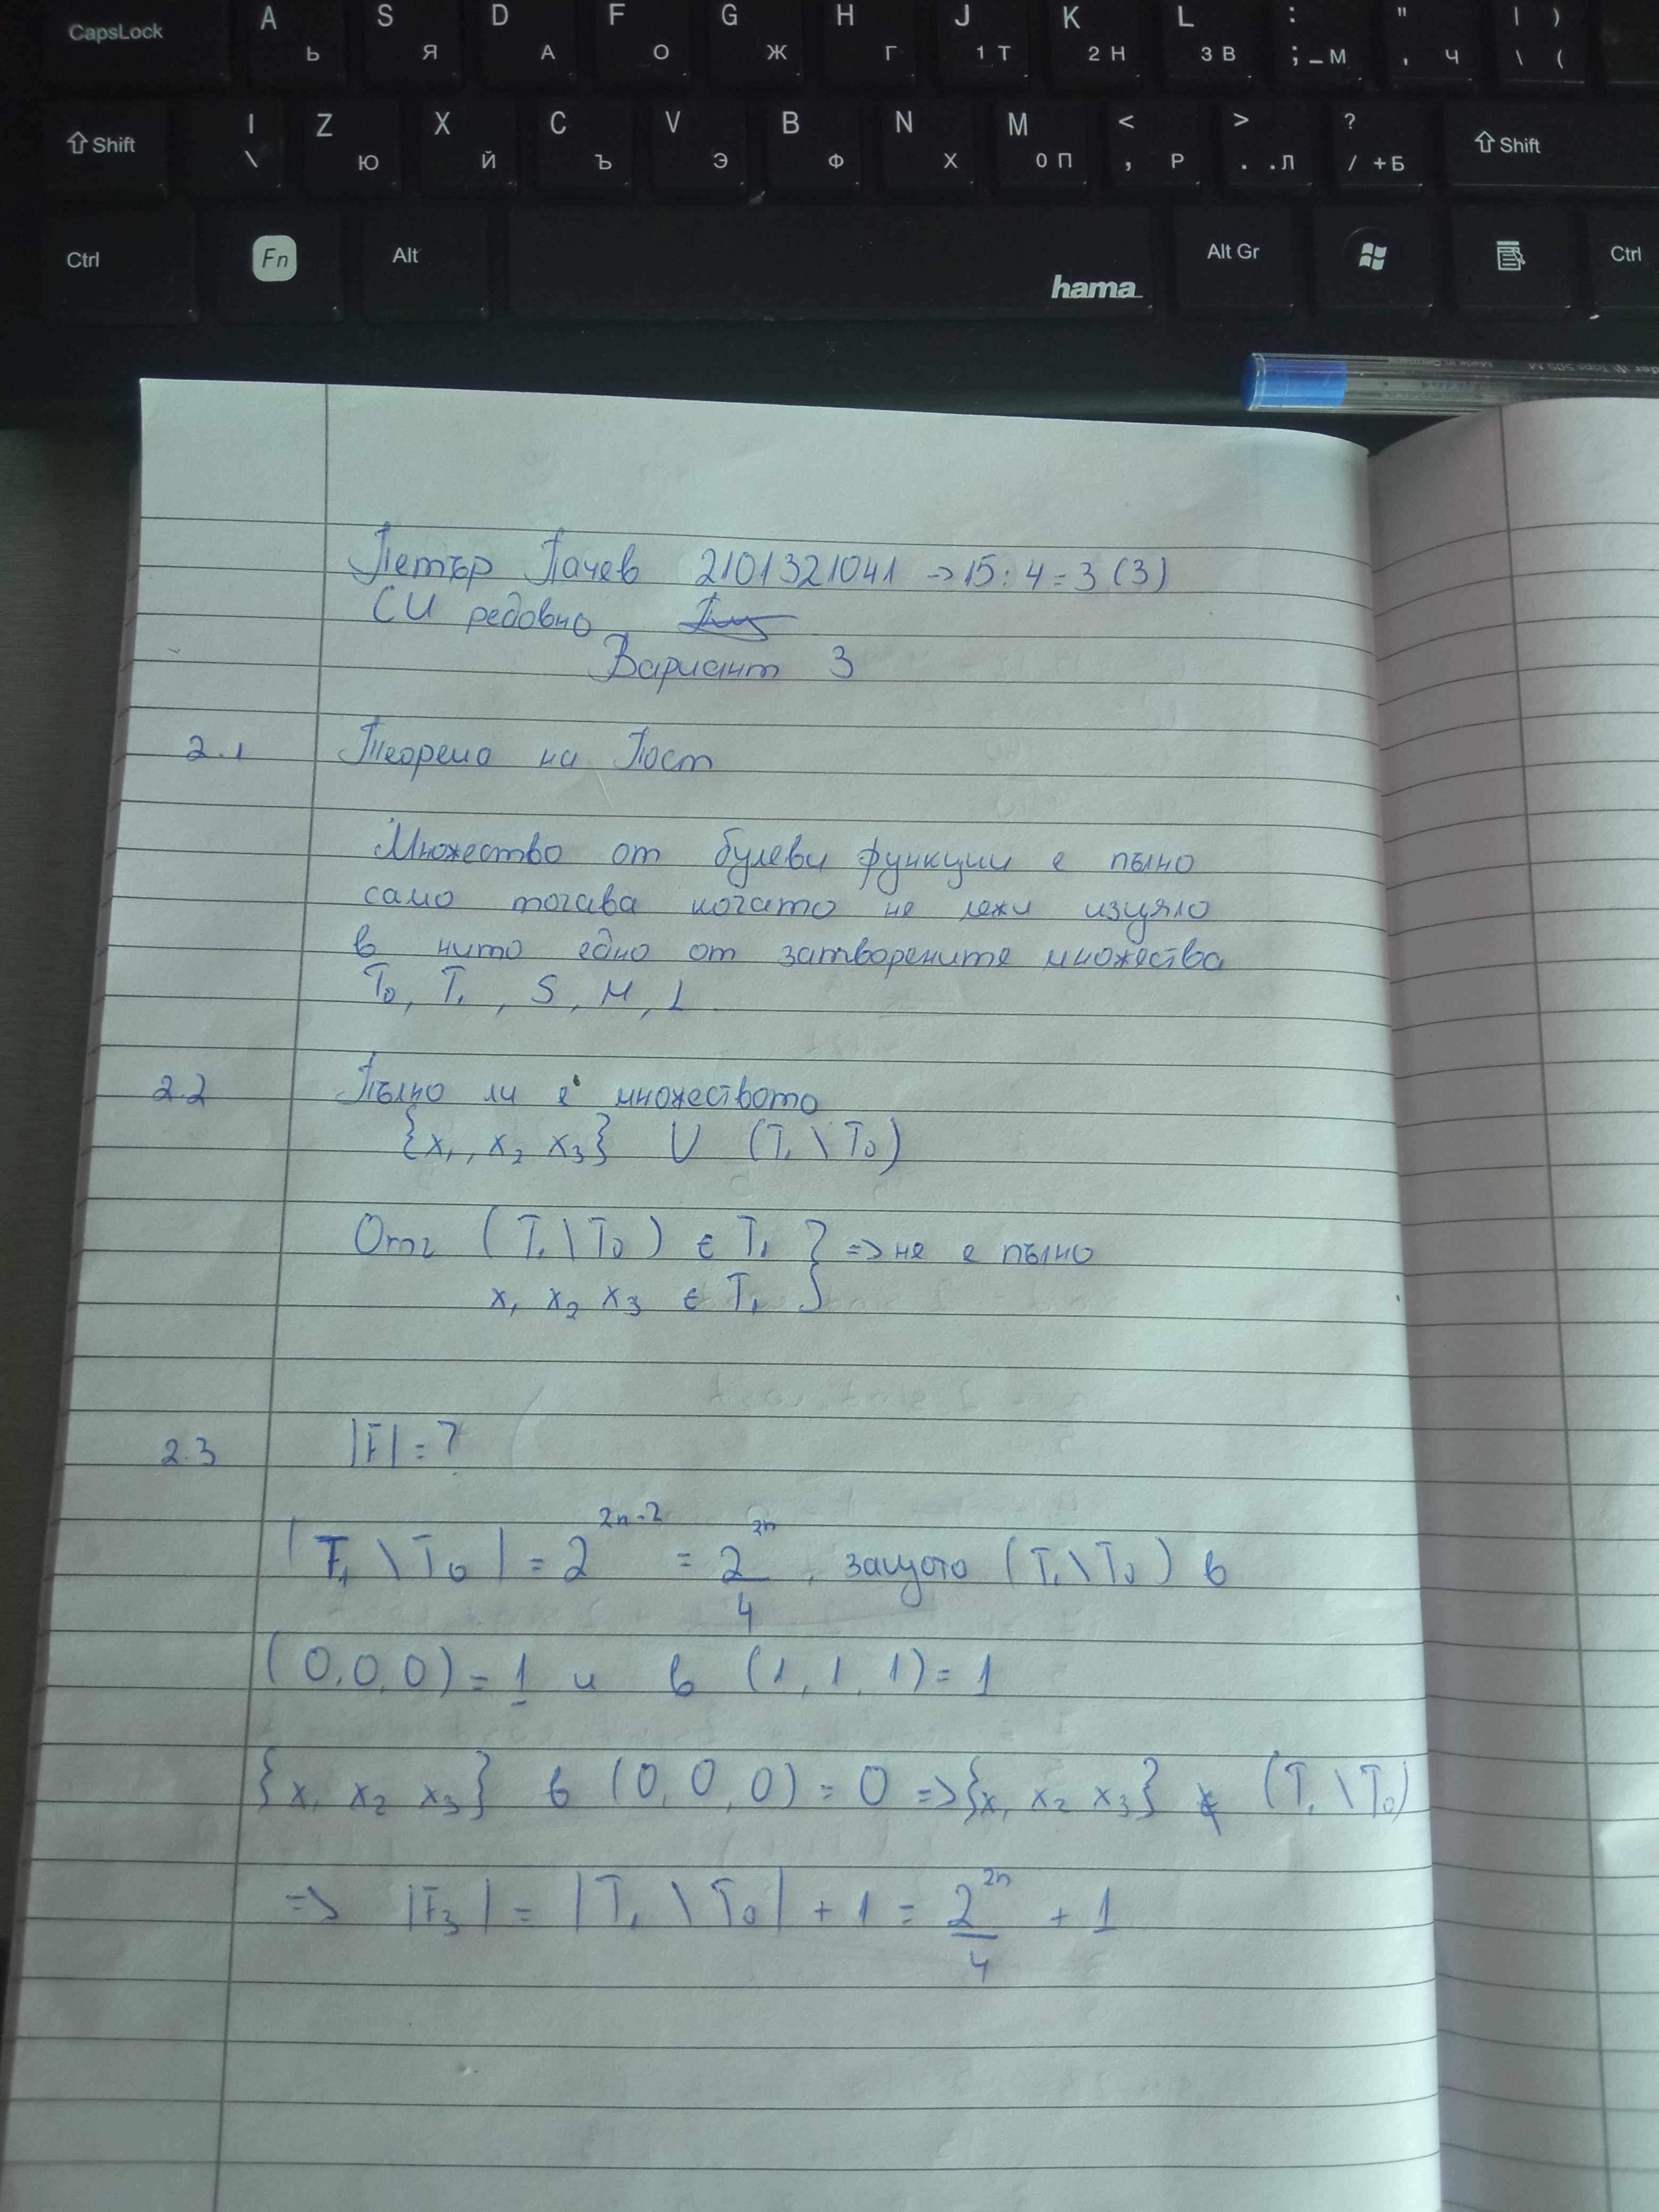 CapsLock A Ь S Я D А F О G Ж H Г J 1 Т K 2 Н L 3 В : ; – М " , Ч | ) \ (
Shift | \ Z Ю X Й C Ъ V Э B Ф N Х M 0 П < , Р > . .Л ? / +Б Shift
Ctrl Fn Alt hama Alt Gr Ctrl
Петър Пачев 2101321041 => 15 : 4 = 3 (3)
СИ редовно
Вариант 3
2.1 Теорема на Пост
Множество от булеви функции е пълно
само тогава когато не лежи изцяло
в нито едно от затворените множества
T₀, T₁, S, M, L
2.2 Пълно ли е множеството
{x₁, x₂ x₃} ∪ (T₁ \ T₀)
Отг (T₁ \ T₀) ∈ T₁ } => не е пълно
x₁ x₂ x₃ ∈ T₁ }
2.3 |F| = ?
|T₁ \ T₀| = 2^{2n-2} = 2^{2n}/4, защото (T₁ \ T₀) в
(0,0,0) = 1 и в (1,1,1) = 1
{x₁ x₂ x₃} в (0,0,0) = 0 => {x₁ x₂ x₃} ∉ (T₁ \ T₀)
=> |F₃| = |T₁ \ T₀| + 1 = 2^{2n}/4 + 1